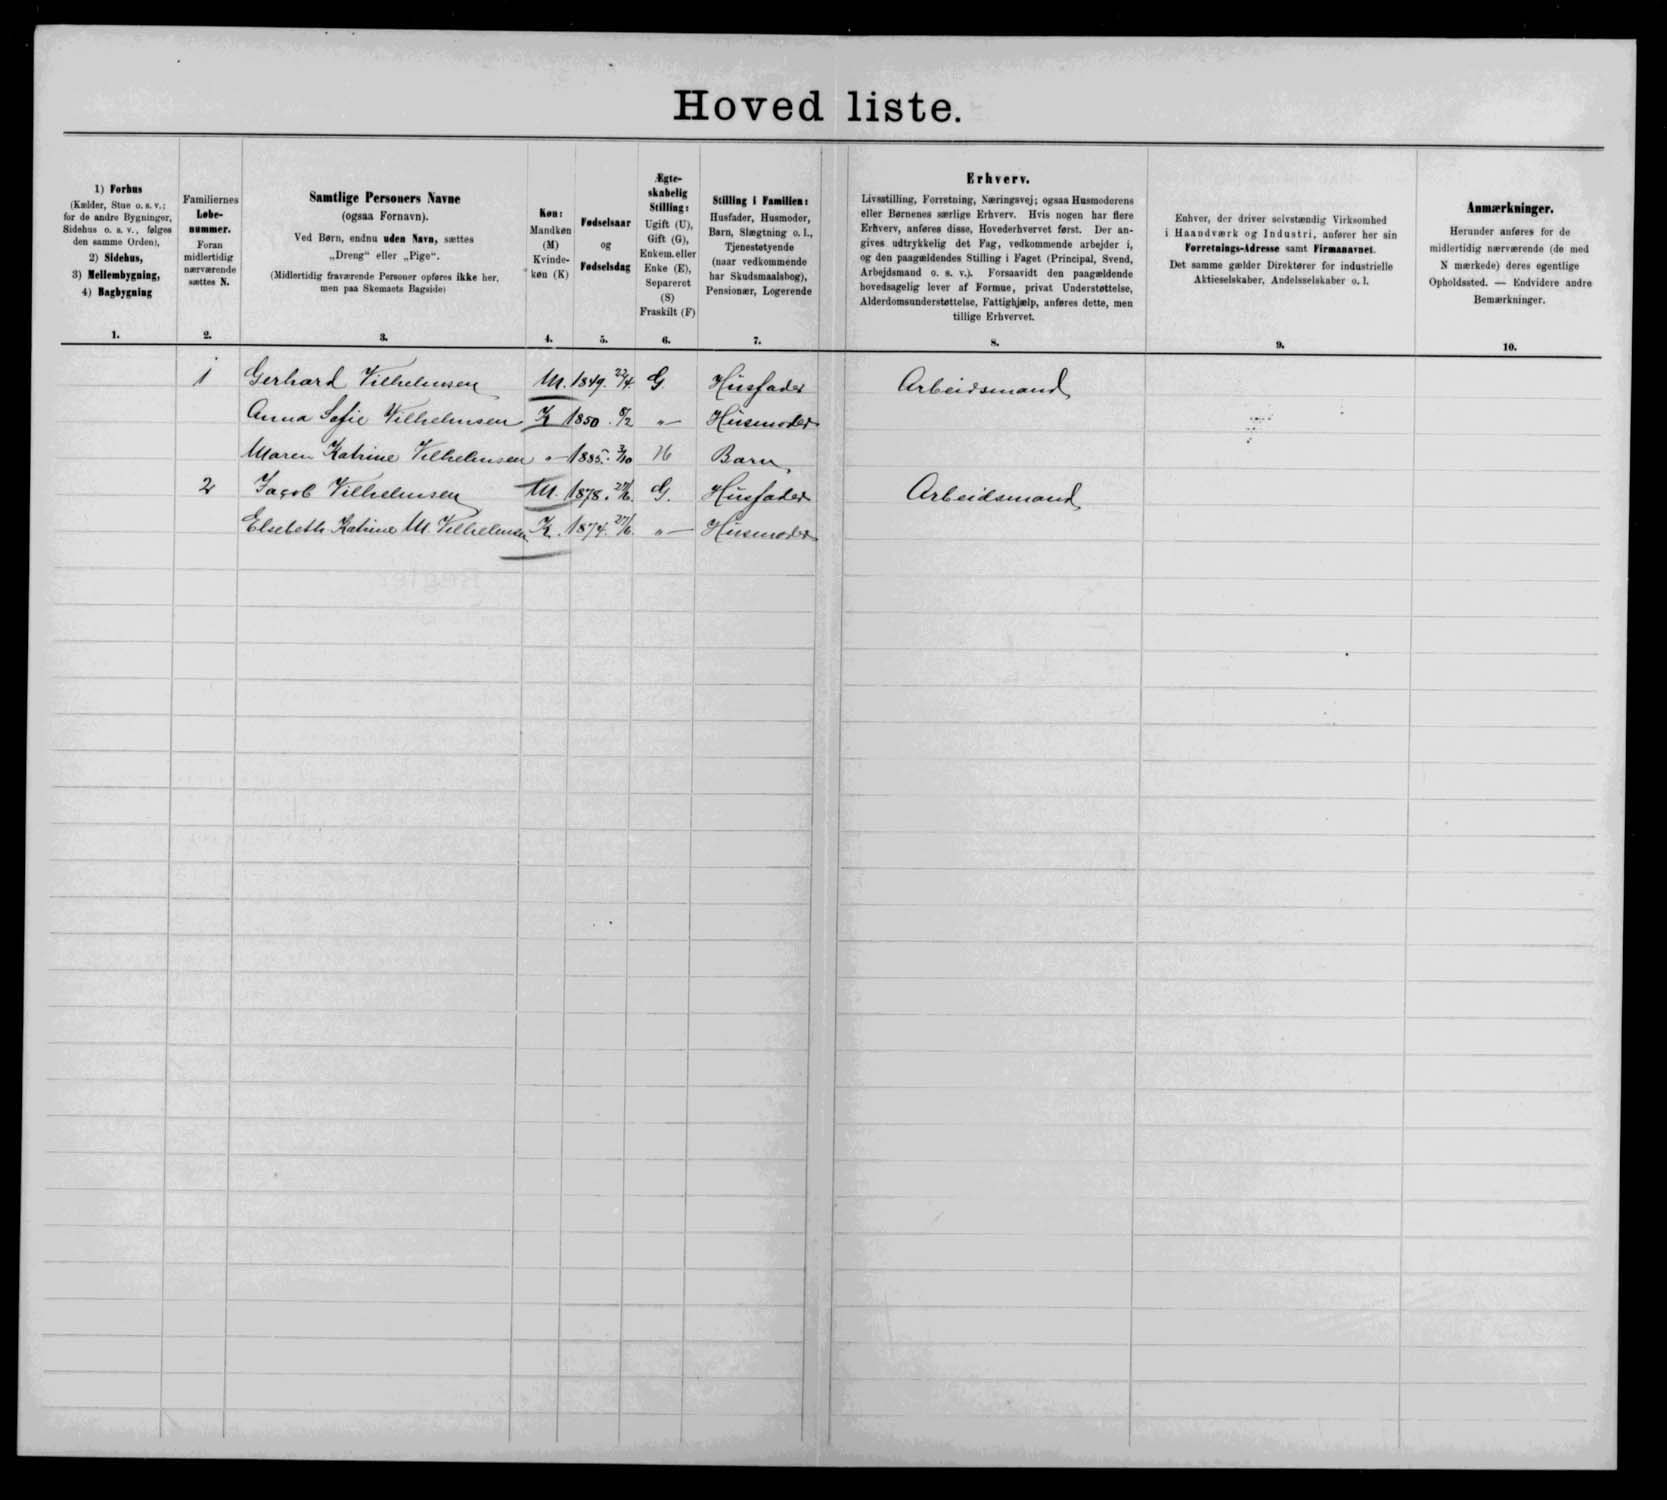 Hoved liste.
1) Forhus
(Kælder, Stue o. s. v.;
for de andre Bygninger,
Sidehus o. s. v., følges
den samme Orden),
2) Sidehus,
3) Mellembygning,
4) Bagbygning
1.
Familiernes
Løbe-
nummer.
Foran
midlertidig
nærværende
sættes N.
2.
Samtlige Personers Navne
(ogsaa Fornavn).
Ved Børn, endnu uden Navn, sættes
„Dreng“ eller „Pige“.
(Midlertidig fraværende Personer opføres ikke her,
men paa Skemaets Bagside)
3.
Køn:
Mandkøn
(M)
Kvinde-
køn (K)
4.
Fødselsaar
og
Fødselsdag
5.
Ægte-
skabelig
Stilling:
Ugift (U),
Gift (G),
Enkem. eller
Enke (E),
Separeret
(S)
Fraskilt (F)
6.
Stilling i Familien:
Husfader, Husmoder,
Barn, Slægtning o. l.,
Tjenestetyende
(naar vedkommende
har Skudsmaalsbog),
Pensionær, Logerende
7.
Erhverv.
Livsstilling, Forretning, Næringsvej; ogsaa Husmoderens
eller Børnenes særlige Erhverv. Hvis nogen har flere
Erhverv, anføres disse, Hovederhvervet først. Der an-
gives udtrykkelig det Fag, vedkommende arbejder i,
og den paagældendes Stilling i Faget (Principal, Svend,
Arbejdsmand o. s. v.). Forsaavidt den paagældende
hovedsagelig lever af Formue, privat Understøttelse,
Alderdomsunderstøttelse, Fattighjælp, anføres dette, men
tillige Erhvervet.
8.
Enhver, der driver selvstændig Virksomhed
i Haandværk og Industri, anfører her sin
Forretnings-Adresse samt Firmanavnet.
Det samme gælder Direktører for industrielle
Aktieselskaber, Andelsselskaber o. l.
9.
Anmærkninger.
Herunder anføres for de
midlertidig nærværende (de med
N mærkede) deres egentlige
Opholdssted. — Endvidere andre
Bemærkninger.
10.
1 Gerhard Vilhelmsen M. 1849. 22/4. G Husfader Arbeidsmand
Anna Sofie Vilhelmsen K 1850. 8/2 „— Husmoder
Maren Katrine Vilhelmsen „— 1885. 3/10 U Barn
2 Jacob Vilhelmsen M. 1878. 27/6. G. Husfader Arbeidsmand
Elsebeth Katrine M. Vilhelmsen K. 1874. 27/6. „— Husmoder